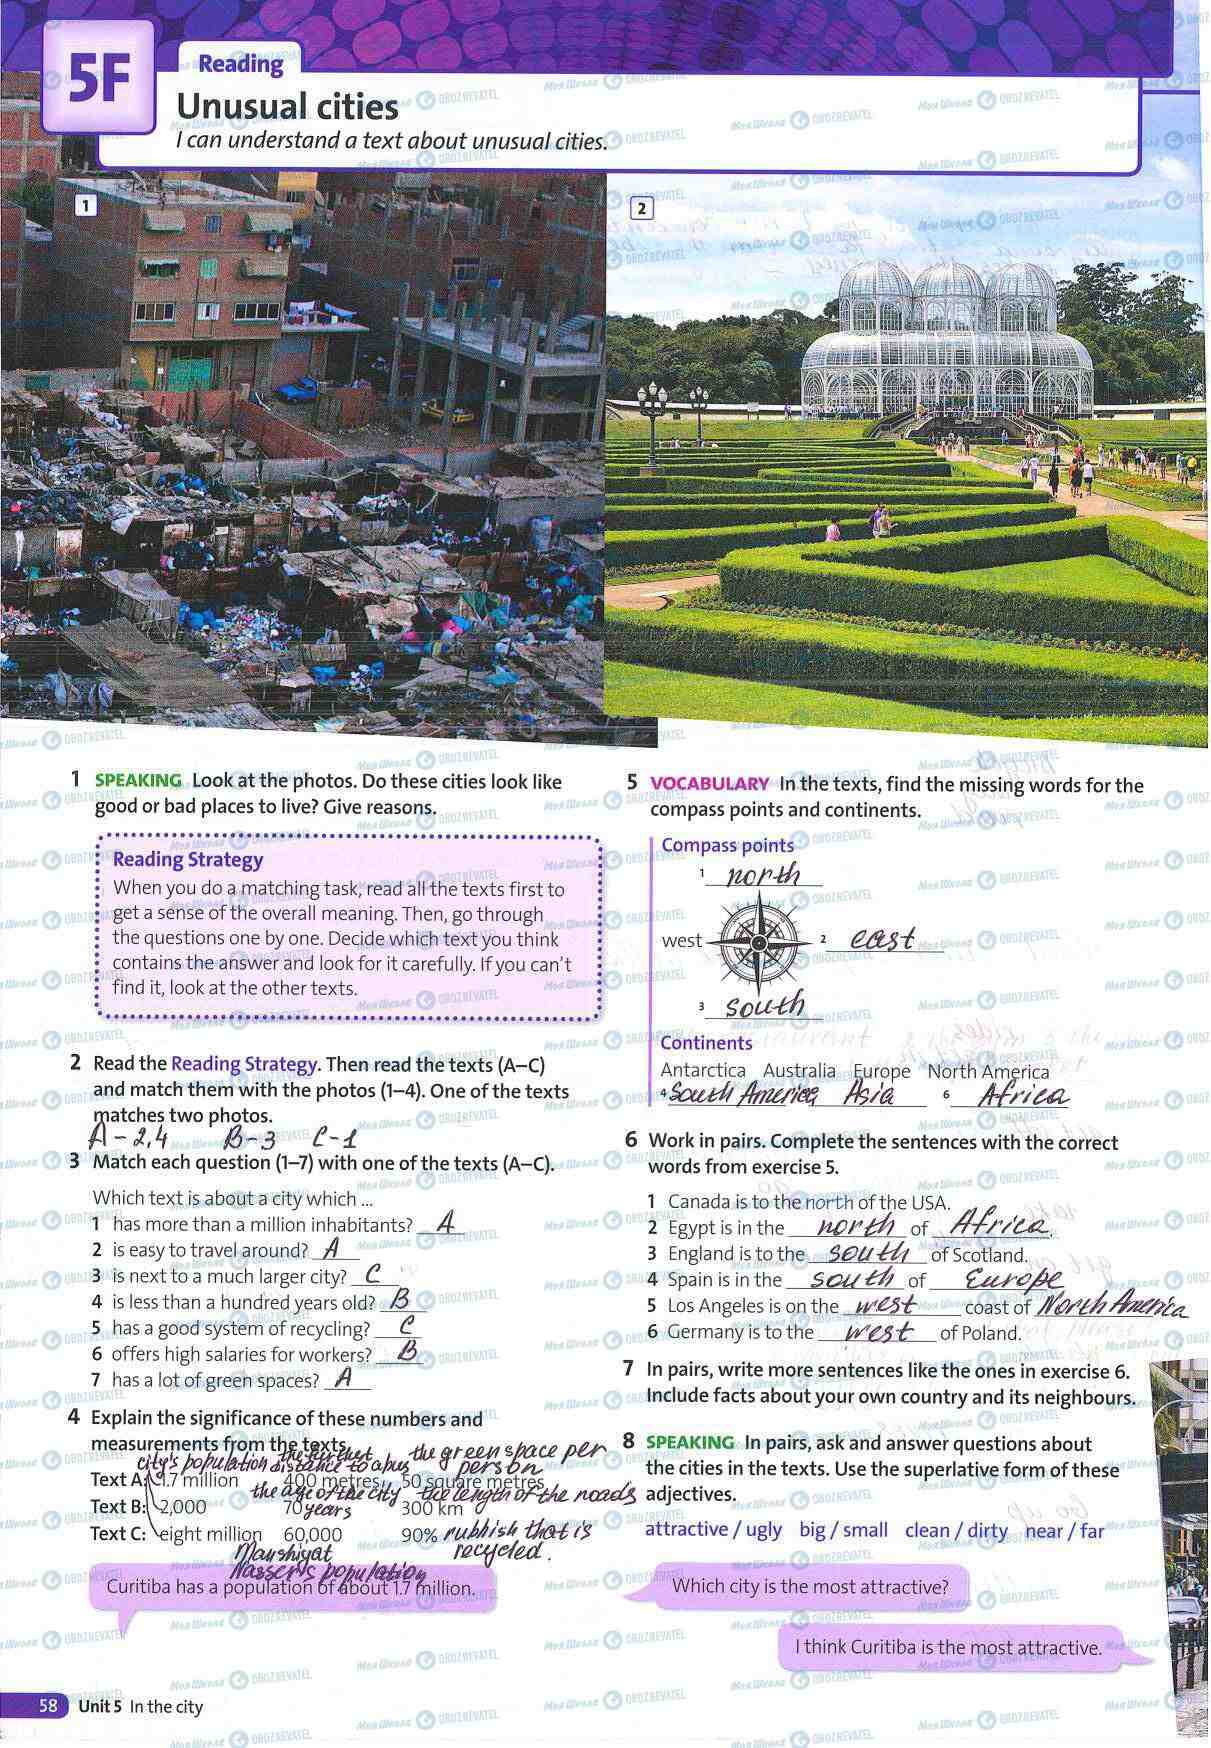 5F
Reading
Unusual cities
I can understand a text about unusual cities.
1
2
1 SPEAKING Look at the photos. Do these cities look like
good or bad places to live? Give reasons.
Reading Strategy
When you do a matching task, read all the texts first to
get a sense of the overall meaning. Then, go through
the questions one by one. Decide which text you think
contains the answer and look for it carefully. If you can't
find it, look at the other texts.
2 Read the Reading Strategy. Then read the texts (A–C)
and match them with the photos (1–4). One of the texts
matches two photos.
A – 2,4 B – 3 C – 1
3 Match each question (1–7) with one of the texts (A–C).
Which text is about a city which ...
1 has more than a million inhabitants? A
2 is easy to travel around? A
3 is next to a much larger city? C
4 is less than a hundred years old? B
5 has a good system of recycling? C
6 offers high salaries for workers? B
7 has a lot of green spaces? A
4 Explain the significance of these numbers and
measurements from the texts.
city's population the furthest distance to a bus the green space per person
Text A: 1.7 million 400 metres 50 square metres
the age of the city the length of the roads
Text B: 2,000 70 years 300 km
Text C: eight million 60,000 90% rubbish that is
Manshiyat recycled.
Nasser's population
Curitiba has a population of about 1.7 million.
5 VOCABULARY In the texts, find the missing words for the
compass points and continents.
Compass points
1 north
west 2 east
3 south
Continents
Antarctica Australia Europe North America
4 South America Asia 6 Africa
6 Work in pairs. Complete the sentences with the correct
words from exercise 5.
1 Canada is to the north of the USA.
2 Egypt is in the north of Africa.
3 England is to the south of Scotland.
4 Spain is in the south of Europe
5 Los Angeles is on the west coast of North America
6 Germany is to the west of Poland.
7 In pairs, write more sentences like the ones in exercise 6.
Include facts about your own country and its neighbours.
8 SPEAKING In pairs, ask and answer questions about
the cities in the texts. Use the superlative form of these
adjectives.
attractive / ugly big / small clean / dirty near / far
Which city is the most attractive?
I think Curitiba is the most attractive.
58 Unit 5 In the city